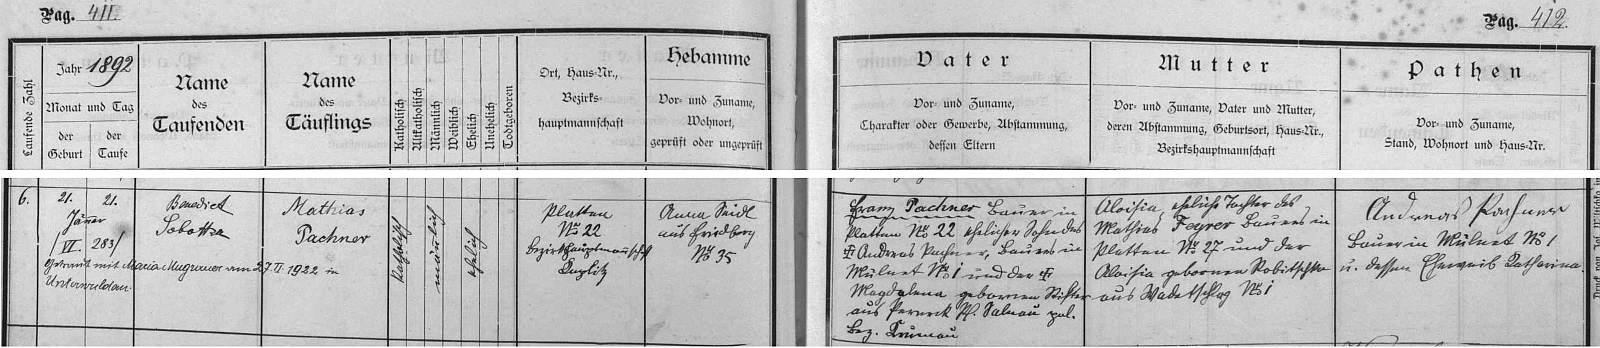 Pag. 411.
Laufende Zahl
Jahr 1892
Monat und Tag
der Geburt
der Taufe
Name
des
Taufenden
Name
des
Täuflings
Katholisch
Altkatholisch
Männlich
Weiblich
Ehelich
Unehelich
Todtgeboren
Ort, Haus-Nr.,
Bezirks-
hauptmannschaft
Hebamme
Vor- und Zuname,
Wohnort,
geprüft oder ungeprüft
Pag. 412.
Vater
Vor- und Zuname,
Charakter oder Gewerbe, Abstammung,
dessen Eltern
Mutter
Vor- und Zuname, Vater und Mutter,
deren Abstammung, Geburtsort, Haus-Nr.,
Bezirkshauptmannschaft
Pathen
Vor- und Zuname,
Stand, Wohnort und Haus-Nr.
6.
21. 21.
Jänner
/VI. 283/
Getraut mit Maria Mugrauer am 27.II.1922 in
Unterwuldau.
Benedict
Sobotka
Mathias
Pachner
Katholisch
männlich
ehelich
Platten
No 22
Bezirkshauptmannschaft
Kaplitz
Anna Seidl
aus Friedberg
No 35
Franz Pachner Bauer in
Platten No 22 ehelicher Sohn des
Andreas Pachner, Bauers in
Mülnet No 1 und der
Magdalena gebornen
aus Perneck Pf. Salnau pol.
Bez. Krumau
Aloisia eheliche Tochter des
Mathias Feyrer Bauers in
Platten No 27 und der
Aloisia gebornen Robitschko
aus Wadetschlag No 1
Andreas Pachner
Bauer in Mülnet No 1
u. dessen Eheweib Katharina.